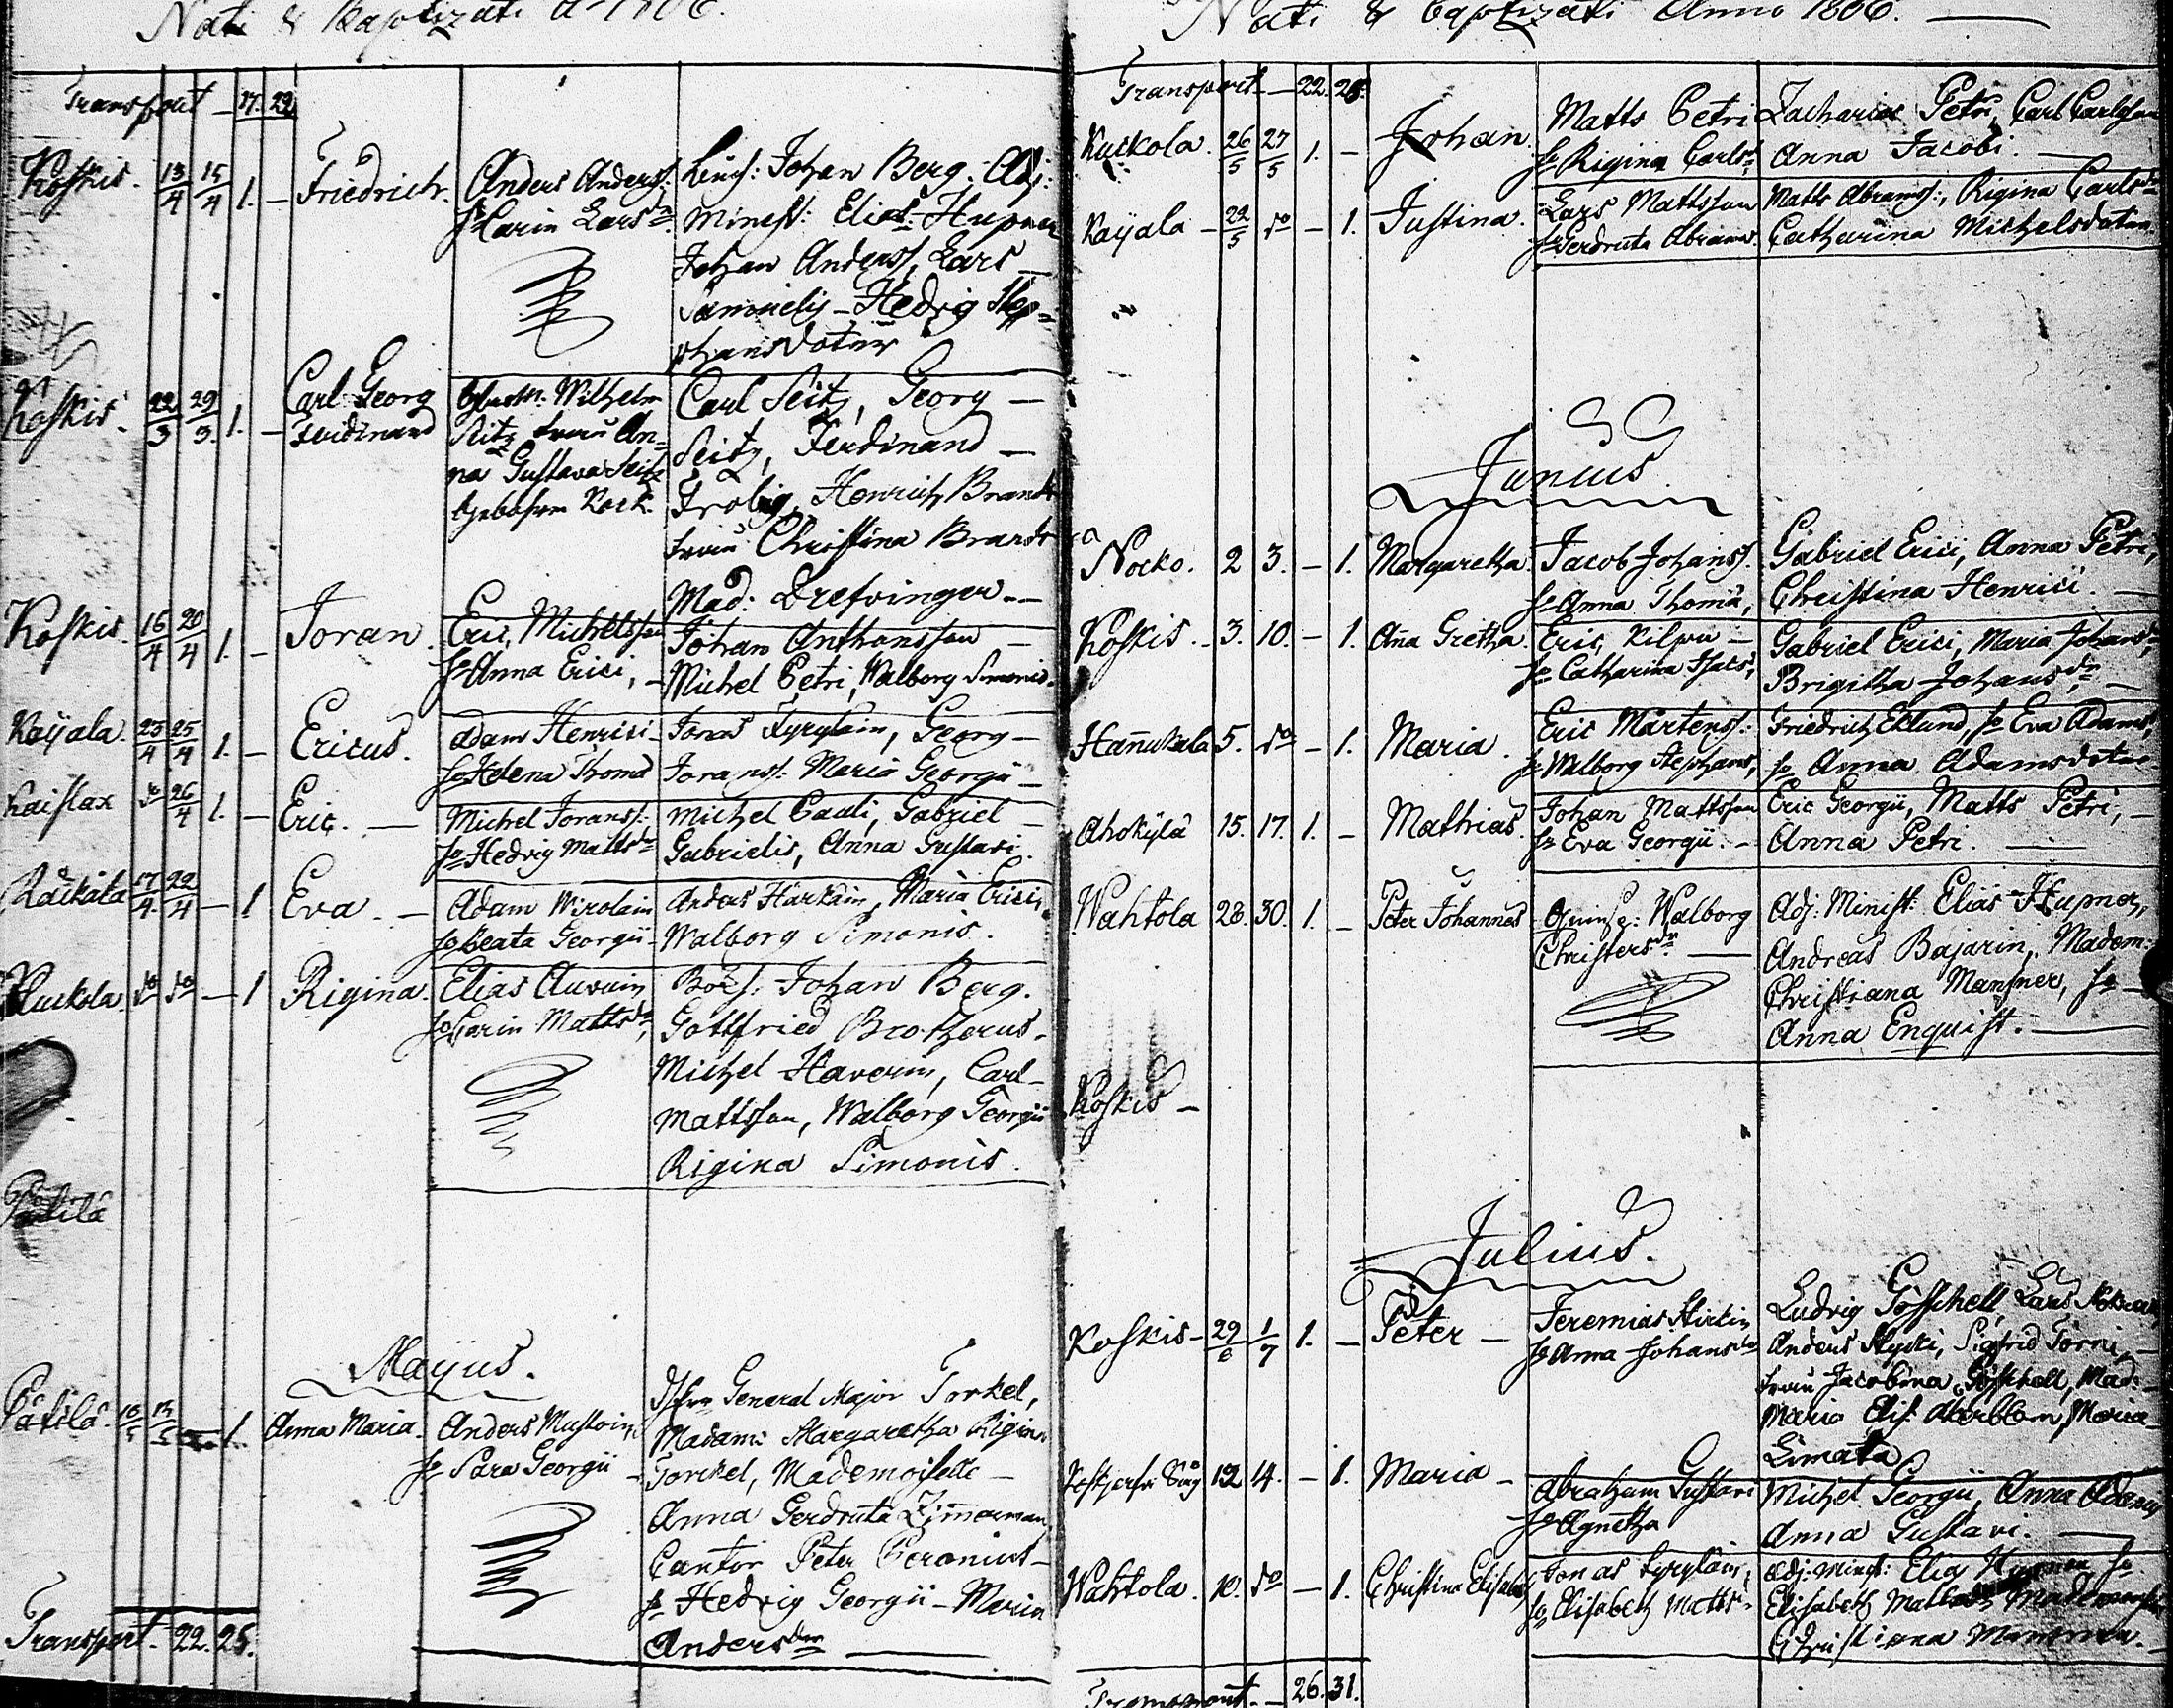 Nati & Baptizati Aº 1806.
Transport — 17. 22
Koskis. 13/4 15/4 1. — Friedrich. Anders Anderss:
Johan Berg. Adj:
h. Carin Larsdr.
Minist: Elias Hupner
Johan Anderss, Lars
Samuelis — Hedvig Step=
hansdotter
Koskis. 22/3 29/3. 1. — Carl Georg
Ferdinand
Glasm: Wilhelm
Seitz frau An=
na Gustava Seitz
Gebohren Kock.
Carl Seitz, Georg —
Seitz, Ferdinand —
Frolig, Henrich Brandt
frau Christina Brandt
Mad: Drefvinger. —
Koskis. 16/4 20/4 1. — Joran.
Eric Michelsson
h. Anna Erici, —
Johan Anthonsson —
Michel Petri, Walborg Simonis.
Kayala. 23/4 25/4 1. — Ericus.
Adam Henrici —
h. Helena Thomæ
Jonas Kyrylain, Georg —
Jorans: Maria Georgii —
Kaislax do 26/4 1. — Eric. —
Michel Jorans:
h. Hedvig Mattsdr
Michel Pauli, Gabriel —
Gabrielis, Anna Gustavi.
17/4. 22/4 — 1 Eva. —
Adam Wirolain
h. Beata Georgii —
Anders Harkäin, Maria Erici,
Walborg Simonis.
Kuckola. do do — 1 Rigina.
Elias Auvuin
h. Carin Mattsdr,
Johan Berg.
Gottfried Brotherus.
Michel Haverin, Carl —
Mattsson, Walborg Georgii
Rigina Simonis.
Majus.
Pätilä. 15/5 — 1. Anna Maria.
Anders Mustoin,
h. Sara Georgii —
General Major Torkel,
Madam: Margaretha Rigina
Torckel, Mademoiselle —
Anna Gerdruta Zimmerman,
Cantor Peter Ceronius —
h. Hedvig Georgii — Maria
Andersdtr —
Transport — 22. 25.
Nati & Baptizati Anno 1806. —
Transport — 22. 25.
Kuckola. 26/5 27/5 1. — Johan.
Matts Petri
h. Rigina Carlsdr,
Zacharias Petri, Carl Carlsson
Anna Jacobi. —
Kayala — 22/5 do — 1. Justina.
Lars Mattsson
h. Gerdruta Abrams.
Matts Abrams:, Rigina Carlsdr
Catharina Michelsdotter
Junius
Nocko. 2 3. — 1. Margaretha.
Jacob Johanss.
h. Anna Thomæ,
Gabriel Erici, Anna Petri,
Christina Henrici. —
Koskis. — 3. 10. — 1. Aña Gretha.
Eric Kilpu —
h. Catharina Isacs,
Gabriel Erici, Maria Johansdr,
Brigitha Johansdr, —
Hañukala 5. do — 1. Maria.
Eric Mårtenss:
h. Walborg Stephans,
Friedrich Eklund, h. Eva Adams,
h. Anna Adamsdotter
Ahokylä 15. 17. 1. — Mathias.
Johan Mattsson
h. Eva Georgii. —
Eric Georgii, Matts Petri, —
Anna Petri. —
Wahtola 28. 30. 1. — Peter Johannes
Qvinsp: Walborg
Christersdr. —
Adj: Minist: Elias Hupner,
Andreas Bajarin, Madem:
Christiana Mansner, h —
Anna Enquist. —
Koskis —
Julius.
Koskis — 29/6 1/7 1. — Peter —
Jeremias Hirkin
h. Anna Johansdr
Ludvig Gösschell, Lars
Anders Hycki, Sigfrid Törni, —
frau Jacobina Gösschell, Mad: —
Maria Elis. Åkerblom, Maria
Limata
12 14. — 1. Maria —
Abraham Gustavi
h. Agnetha
Michel Georgii, Anna Adami,
Anna Gustavi. —
Wahtola. 10. do — 1. Christina Elisabeth
Jonas Kyrylain,
h. Elisabeth Matts.
Adj: Minist: Elias Hupner h
Elisabeth
Christiana
Transport. — 26. 31.